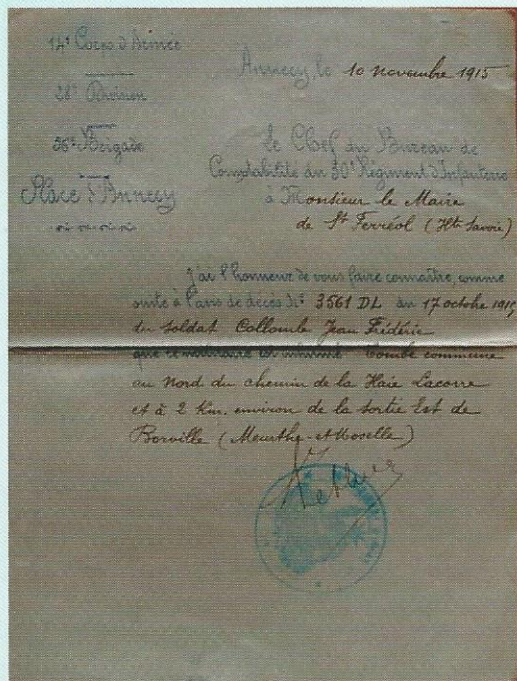 14e Corps d'Armée
28e Division
56e Brigade
Place d'Annecy
Annecy, le 10 novembre 1915
le Chef du Bureau de
Comptabilité du 30e Régiment d'Infanterie
à Monsieur le Maire
de St Ferréol (Hte Savoie)
J'ai l'honneur de vous faire connaître, comme
suite à l'avis de décès No 3561 DL du 17 octobre 1915
du soldat Collomb Jean Frédéric
que ce militaire est inhumé Tombe commune
au Nord du chemin de la Haie Lacorre
et à 2 Km. environ de la sortie Est de
Borville (Meurthe-et-Moselle)